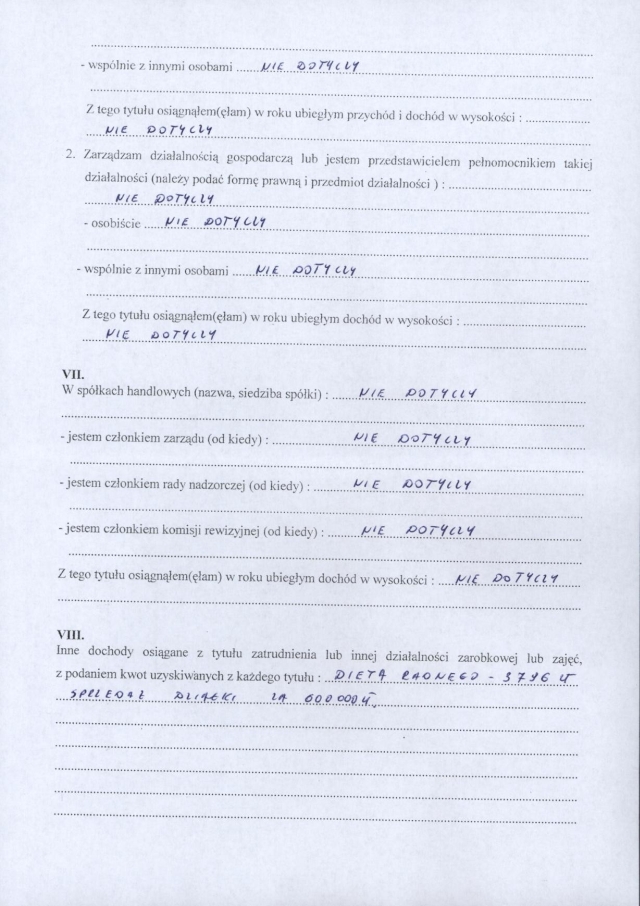 - wspólnie z innymi osobami ...... NIE DOTYCZY
Z tego tytułu osiągnąłem(ęłam) w roku ubiegłym przychód i dochód w wysokości : ......
...... NIE DOTYCZY
2. Zarządzam działalnością gospodarczą lub jestem przedstawicielem pełnomocnikiem takiej
działalności (należy podać formę prawną i przedmiot działalności ) : ......
...... NIE DOTYCZY
- osobiście ...... NIE DOTYCZY
- wspólnie z innymi osobami ...... NIE DOTYCZY
Z tego tytułu osiągnąłem(ęłam) w roku ubiegłym dochód w wysokości : ......
...... NIE DOTYCZY
VII.
W spółkach handlowych (nazwa, siedziba spółki) : ...... NIE DOTYCZY
- jestem członkiem zarządu (od kiedy) : ...... NIE DOTYCZY
- jestem członkiem rady nadzorczej (od kiedy) : ...... NIE DOTYCZY
- jestem członkiem komisji rewizyjnej (od kiedy) : ...... NIE DOTYCZY
Z tego tytułu osiągnąłem(ęłam) w roku ubiegłym dochód w wysokości : ...... NIE DOTYCZY
VIII.
Inne dochody osiągane z tytułu zatrudnienia lub innej działalności zarobkowej lub zajęć,
z podaniem kwot uzyskiwanych z każdego tytułu : .. DIETA RADNEGO - 3796 zł
SPRZEDAŻ DZIAŁKI ZA 600 000 zł